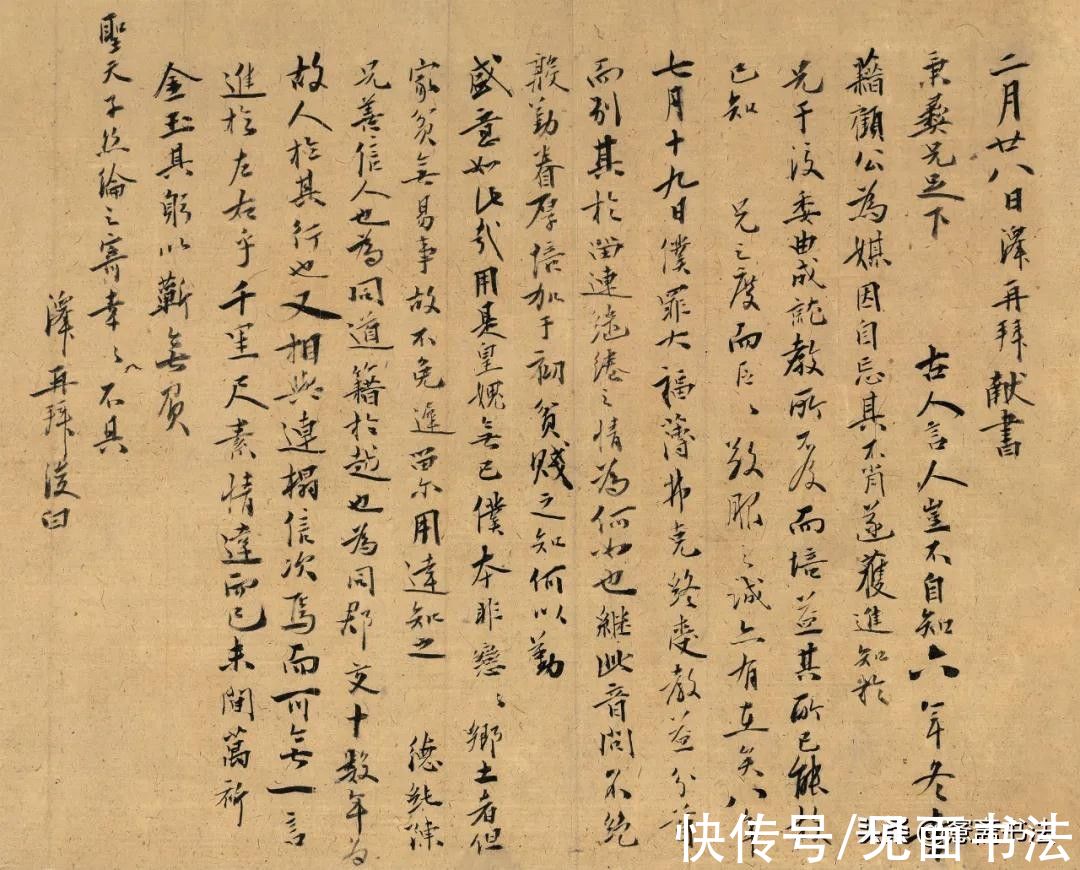 二月廿八日澤再拜獻書
秉彝兄足下 古人言人豈不自知六年冬
藉顧公為媒因自忘其不肖遂獲進知於
兄于後委曲成就教所不及而培益其所已能
已知 兄之度而區〻敬服之誠亦有在矣八年
七月十九日僕罪大福薄弗克終受教益分
而別其於留連繾綣之情為何如也繼此音問不絕
殷勤眷厚倍加于初貧賤之知何以勤
盛意如此哉用是皇愧無已僕本非戀〻鄉土者但
家貧無易事故不免遲留尔用達知之 德純陳
兄善信人也為同道籍於越也為同郡交十數年為
故人於其行也又相與連榻信次焉而可無一言
進於左右乎千里尺素情達而已未間萬祈
金玉其躬以蘄無負
聖天子絲綸之寄幸〻不具
澤再拜後曰
快传号/见面书法
头条@
书法